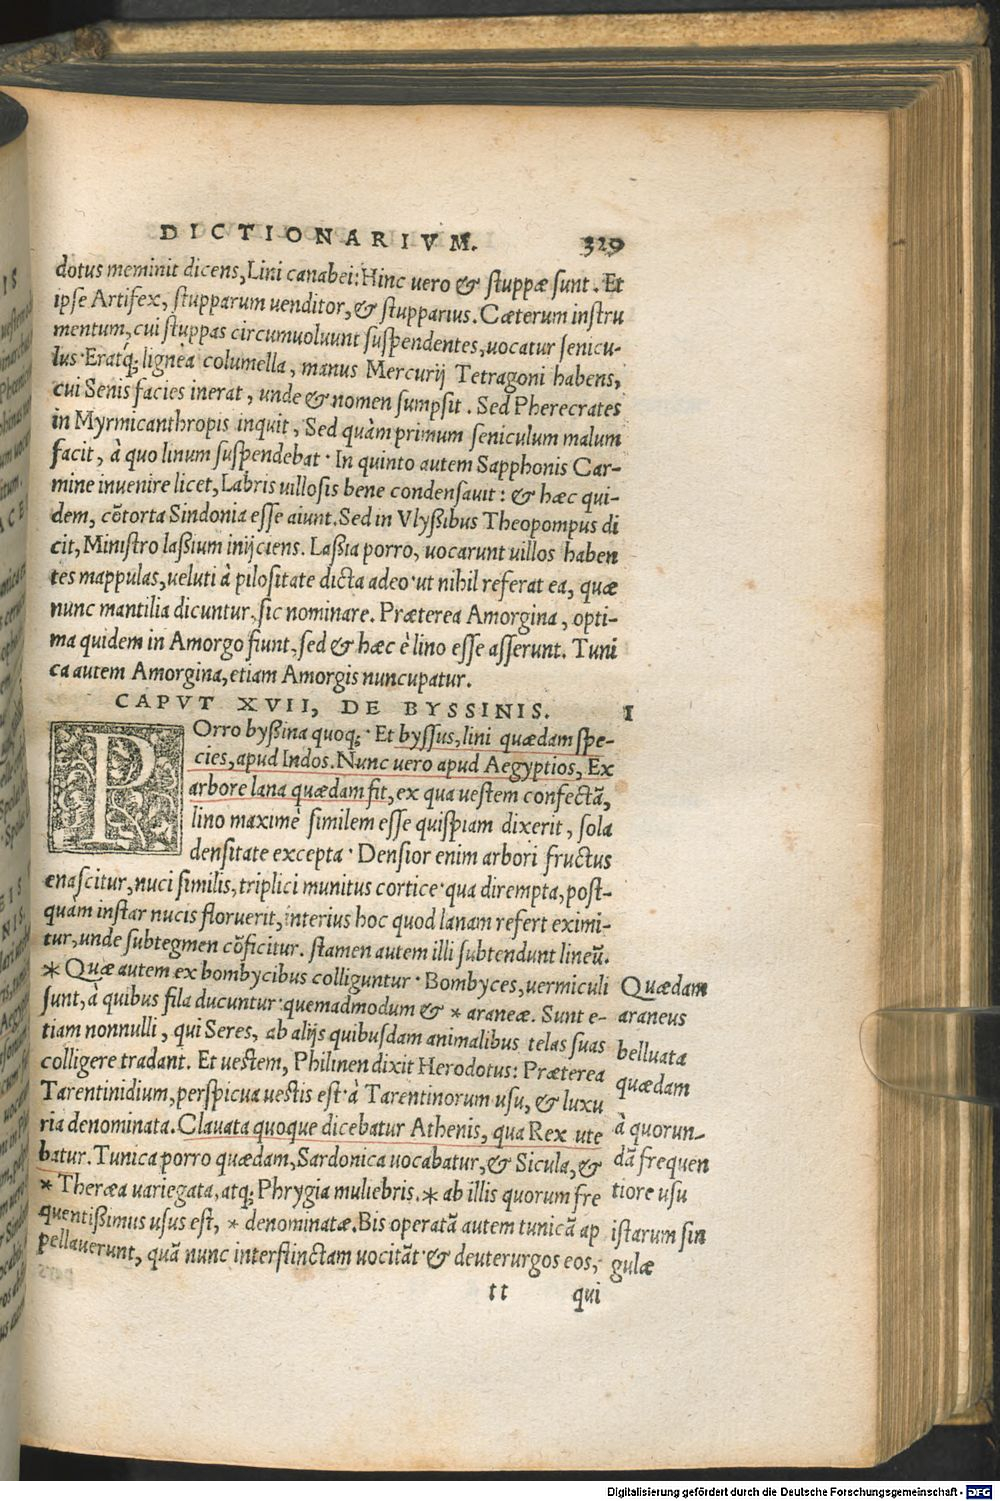 DICTIONARIVM. 329
dotus meminit dicens, Lini canabei: Hinc vero & stuppæ sunt. Et
ipse Artifex, stupparum venditor, & stupparius. Cæterum instru
mentum, cui stuppas circumuoluunt suspendentes, uocatur senicu-
lus. Eratq; lignea columella, manus Mercurij Tetragoni habens,
cui Senis facies inerat, unde & nomen sumpsit. Sed Pherecrates
in Myrmicanthropis inquit, Sed quàm primum seniculum malum
facit, à quo linum suspendebat. In quinto autem Sapphonis Car-
mine inuenire licet, Labris uillosis bene condensauit: & hæc qui-
dem, cõtorta Sindonia esse aiunt. Sed in Vlyßibus Theopompus di
cit, Ministro laßium inijciens. Laßia porro, uocarunt uillos haben
tes mappulas, ueluti à pilositate dicta adeo ut nihil referat ea, quæ
nunc mantilia dicuntur, sic nominare. Præterea Amorgina, opti-
ma quidem in Amorgo fiunt, sed & hæc è lino esse asserunt. Tuni
ca autem Amorgina, etiam Amorgis nuncupatur.
CAPVT XVII, DE BYSSINIS. I
POrro byßina quoq;. Et byssus, lini quædam spe-
cies, apud Indos. Nunc uero apud Aegyptios, Ex
arbore lana quædam fit, ex qua uestem confectã,
lino maximè similem esse quispiam dixerit, sola
densitate excepta. Densior enim arbori fructus
enascitur, nuci similis, triplici munitus cortice qua dirempta, post-
quàm instar nucis floruerit, interius hoc quod lanam refert eximi-
tur, unde subtegmen cõficitur. stamen autem illi subtendunt lineũ.
* Quæ autem ex bombycibus colliguntur. Bombyces, uermiculi
sunt, à quibus fila ducuntur quemadmodum & * araneæ. Sunt e-
tiam nonnulli, qui Seres, ab alijs quibusdam animalibus telas suas
colligere tradant. Et uestem, Philinen dixit Herodotus: Præterea
Tarentinidium, perspicua uestis est à Tarentinorum usu, & luxu
ria denominata. Clauata quoque dicebatur Athenis, qua Rex ute
batur. Tunica porro quædam, Sardonica uocabatur, & Sicula, &
* Theræa uariegata, atq; Phrygia muliebris. * ab illis quorum fre
quentißimus usus est, * denominatæ. Bis operatã autem tunicã ap
pellauerunt, quã nunc interstinctam uocitãt & deuterurgos eos,
tt qui
Quædam
araneus
belluata
quædam
à quorun-
dã frequen
tiore usu
istarum sin
gulæ
Digitalisierung gefördert durch die Deutsche Forschungsgemeinschaft - DFG